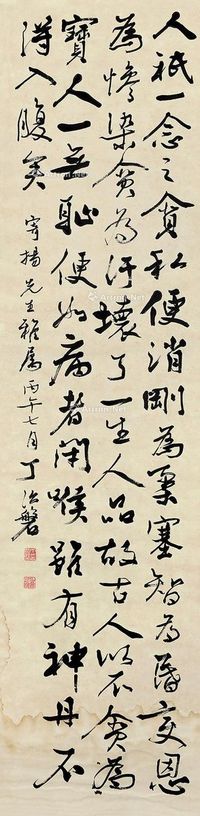 人祇一念之貪私便消剛為柔塞智為昏變恩
為慘染貪為汙壞了一生人品故古人以不貪為
寶人一無恥便如病者閉喉雖有神丹不
得入腹矣
寄揚先生雅屬丙午七月丁治磐